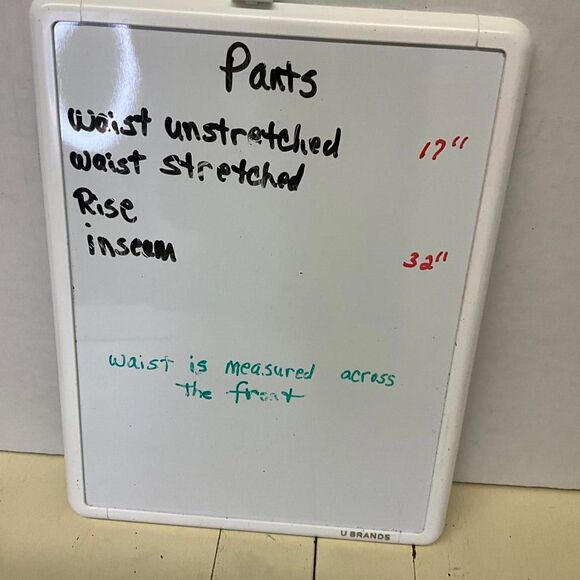 Pants
Waist unstretched 17"
waist stretched
Rise
inseam 32"
waist is measured across
the front
U BRANDS